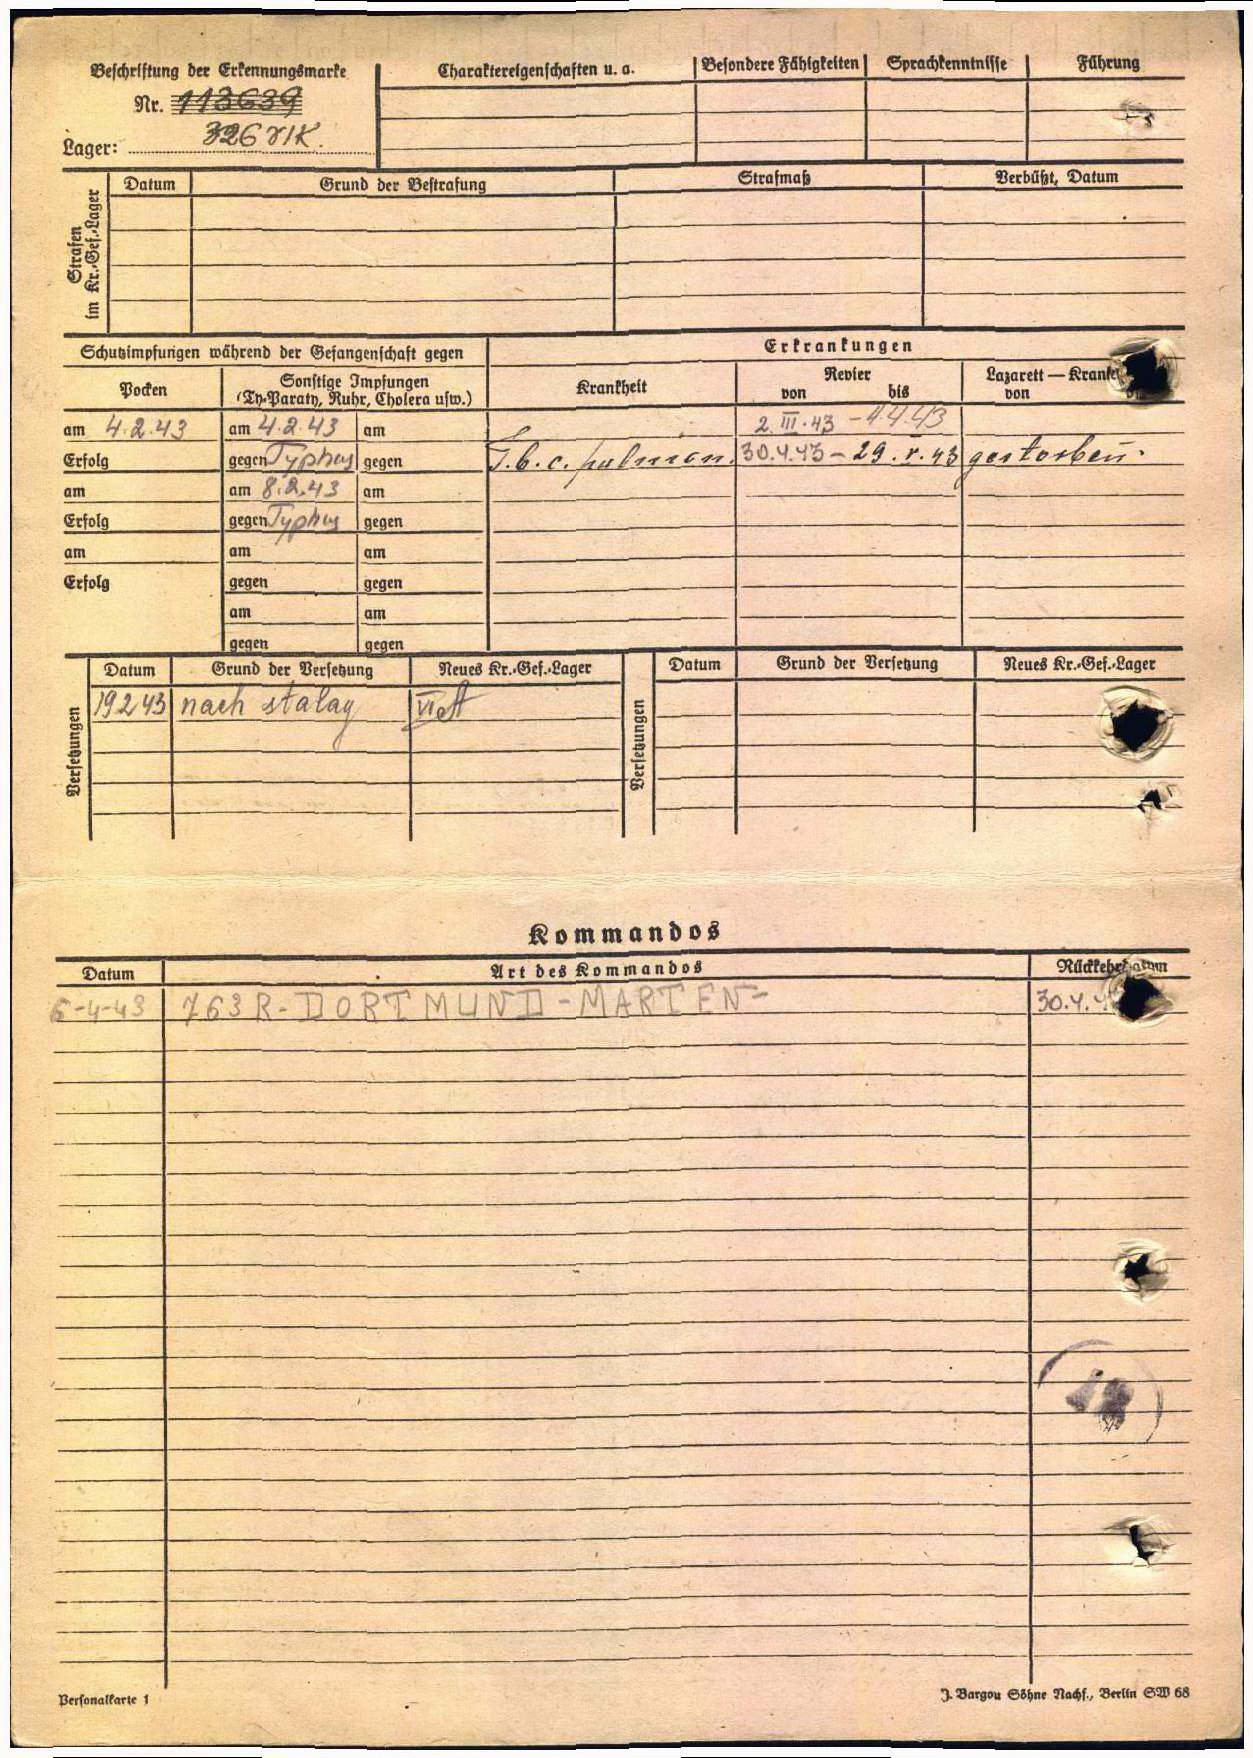 Beschriftung der Erkennungsmarke
Nr. 113639
Lager: 326 VIK.
Charaktereigenschaften u. a.
Besondere Fähigkeiten
Sprachkenntnisse
Führung
Strafen im Kr.-Gef.-Lager
Datum
Grund der Bestrafung
Strafmaß
Verbüßt, Datum
Schutzimpfungen während der Gefangenschaft gegen
Erkrankungen
Pocken
Sonstige Impfungen
(Ty-Paraty, Ruhr, Cholera usw.)
Krankheit
Revier
von bis
Lazarett — Krankenh
von
am 4.2.43 am 4.2.43 am 2.III.43 - 4.4.43
Erfolg gegen Typhus gegen T.b.c. pulmon. 30.4.43 - 29.V.43 gestorben.
am am 8.2.43 am
Erfolg gegen Typhus gegen
am am am
Erfolg gegen gegen
am am
gegen gegen
Versetzungen
Datum Grund der Versetzung Neues Kr.-Gef.-Lager
19 2 43 nach stalag VI A
Versetzungen
Datum Grund der Versetzung Neues Kr.-Gef.-Lager
Kommandos
Datum Art des Kommandos Rückkehrdatum
6-4-43 763 R-DORTMUND-MARTEN- 30.4.4
Personalkarte 1
J. Bargou Söhne Nachf., Berlin SW 68